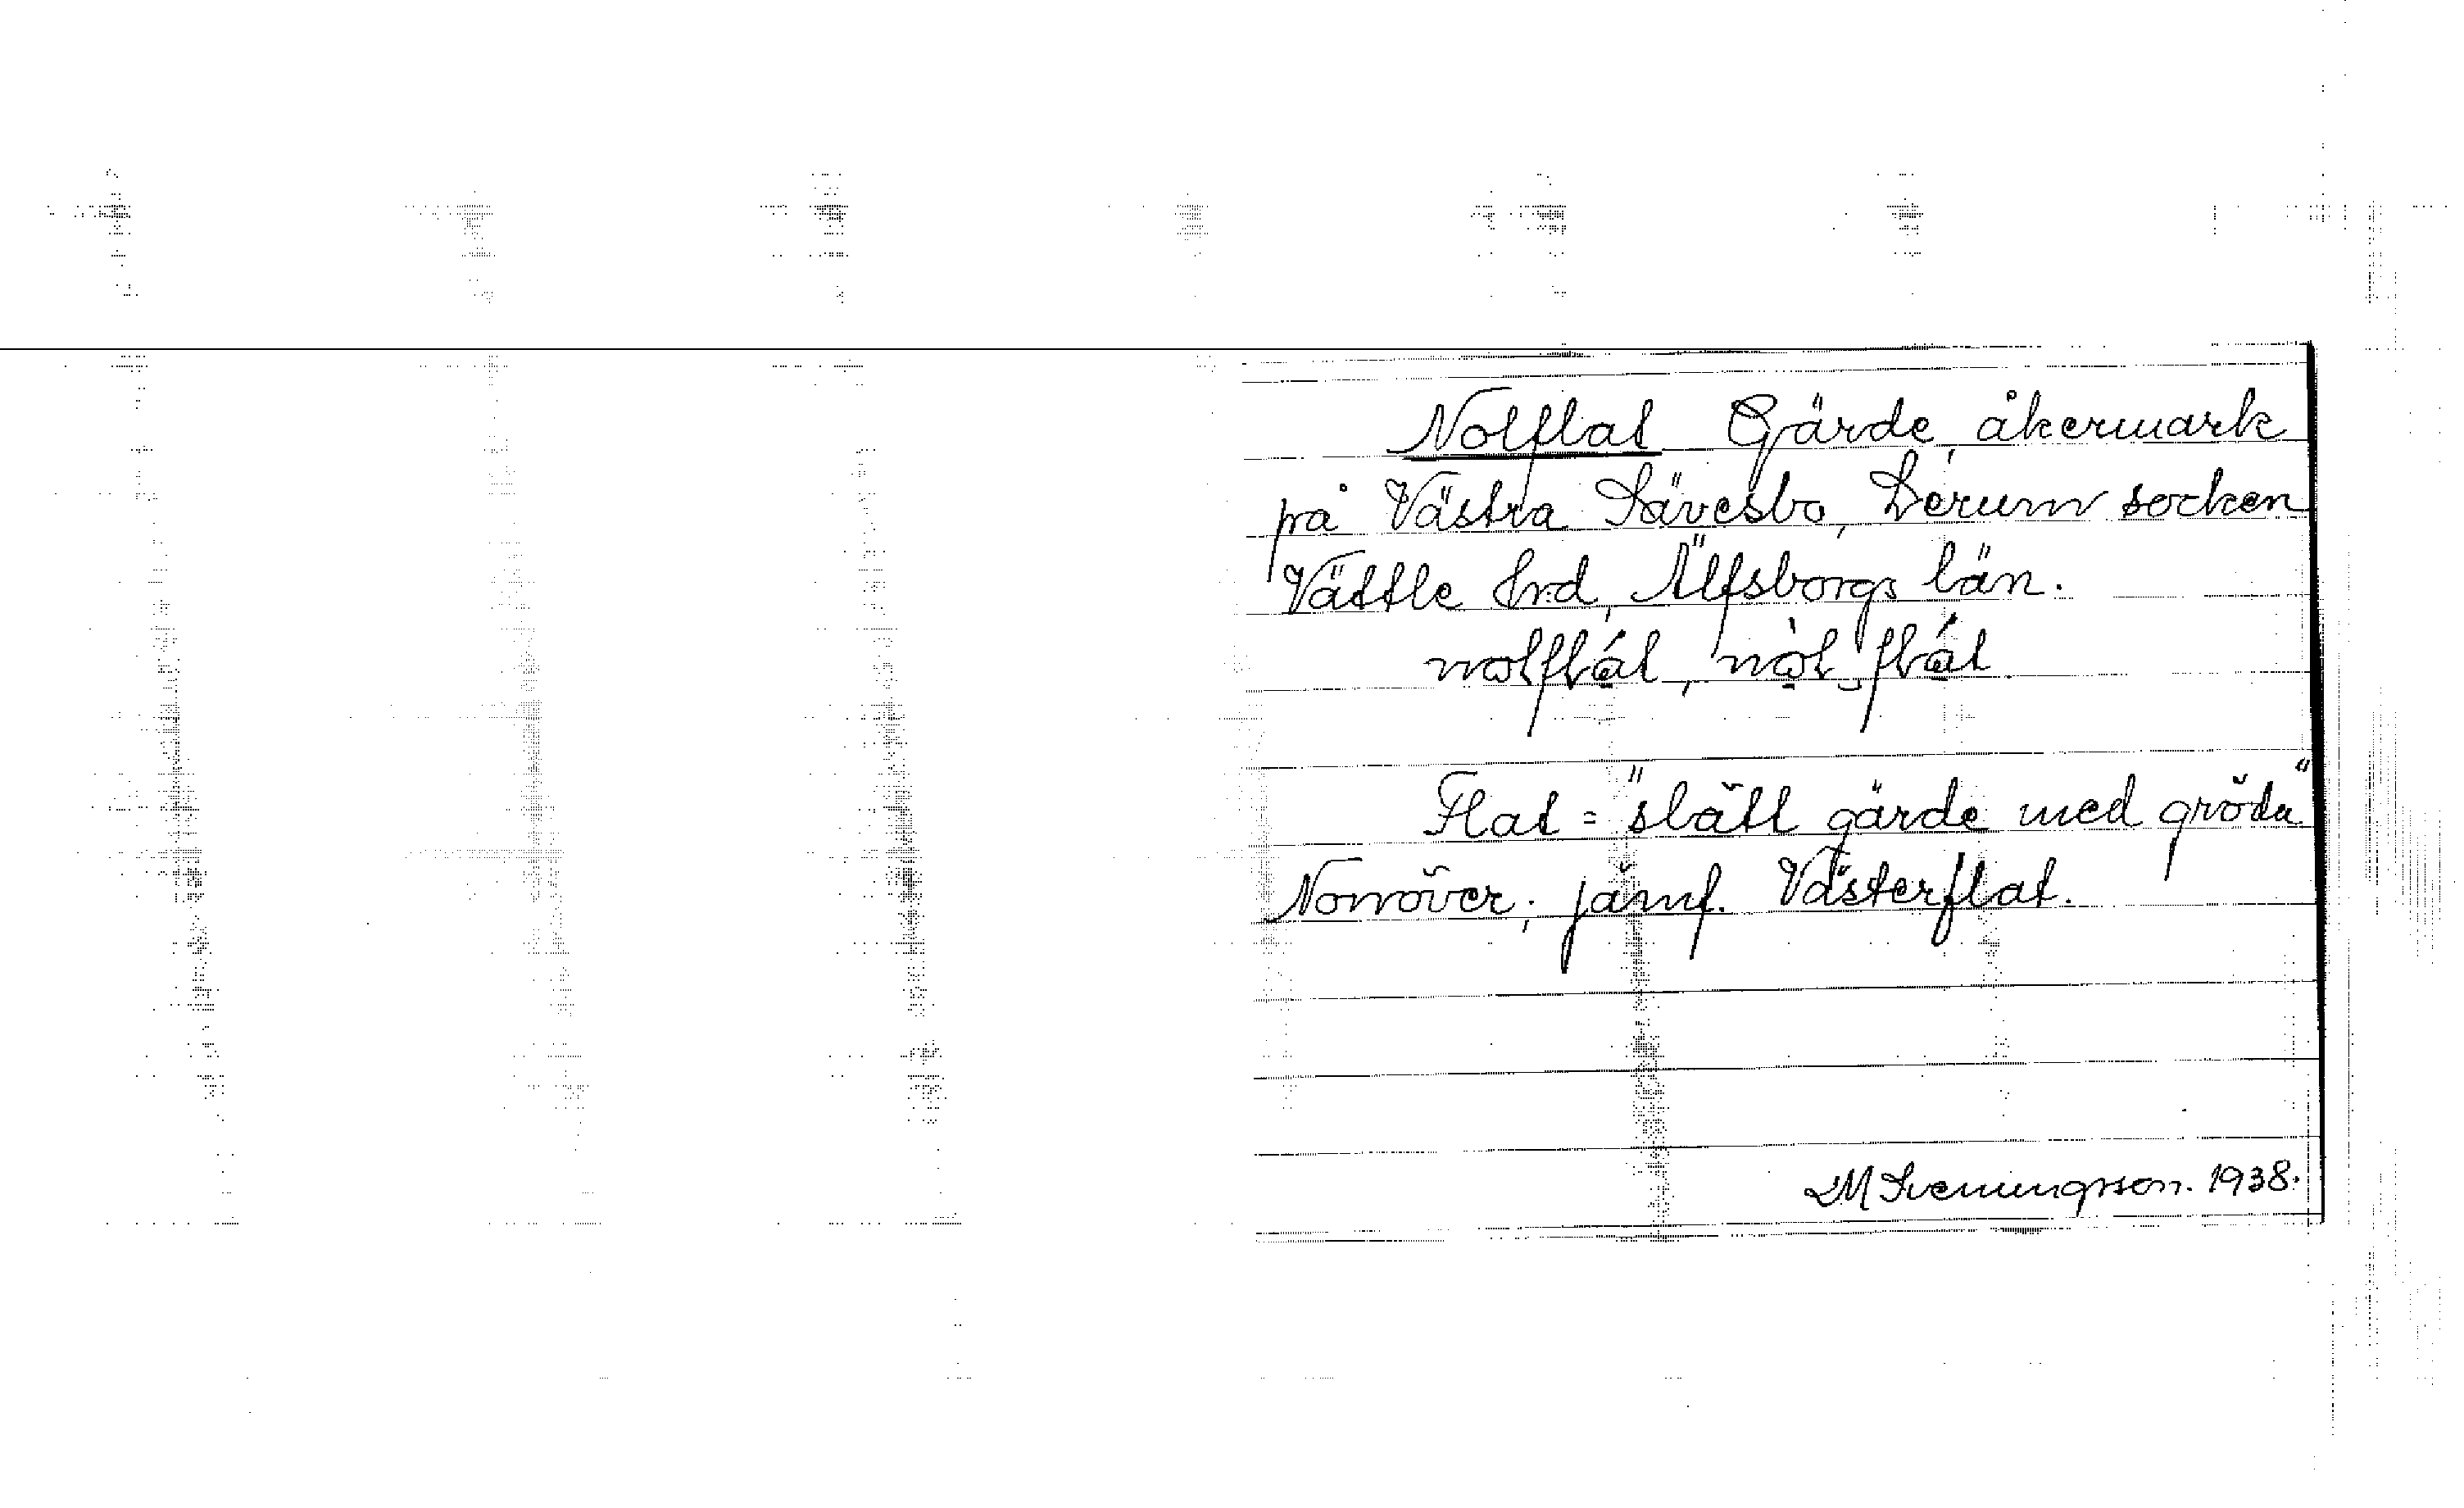 Nolflat Gärde, åkermark
på Västra Sävesbo, Lerum socken
Vättle hrd, Älfsborgs län.
nolflát, nòl flát
Flat = "slätt gärde med gröda"
Norröver; jämf. Västerflat.
LM Svenungsson. 1938.